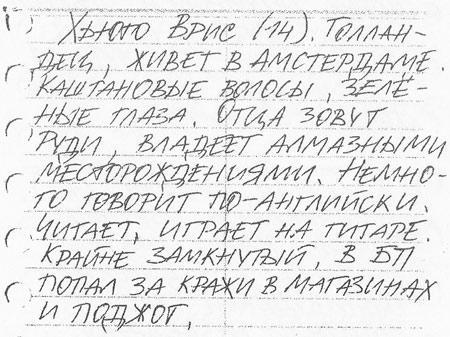 Хьюго Врис (14). Голлан-
дец, живет в Амстердаме.
Каштановые волосы, зелё-
ные глаза. Отца зовут
Руди, владеет алмазными
месторождениями. Немно-
го говорит по-английски.
Читает, играет на гитаре.
Крайне замкнутый. В БП
попал за кражи в магазинах
и поджог.